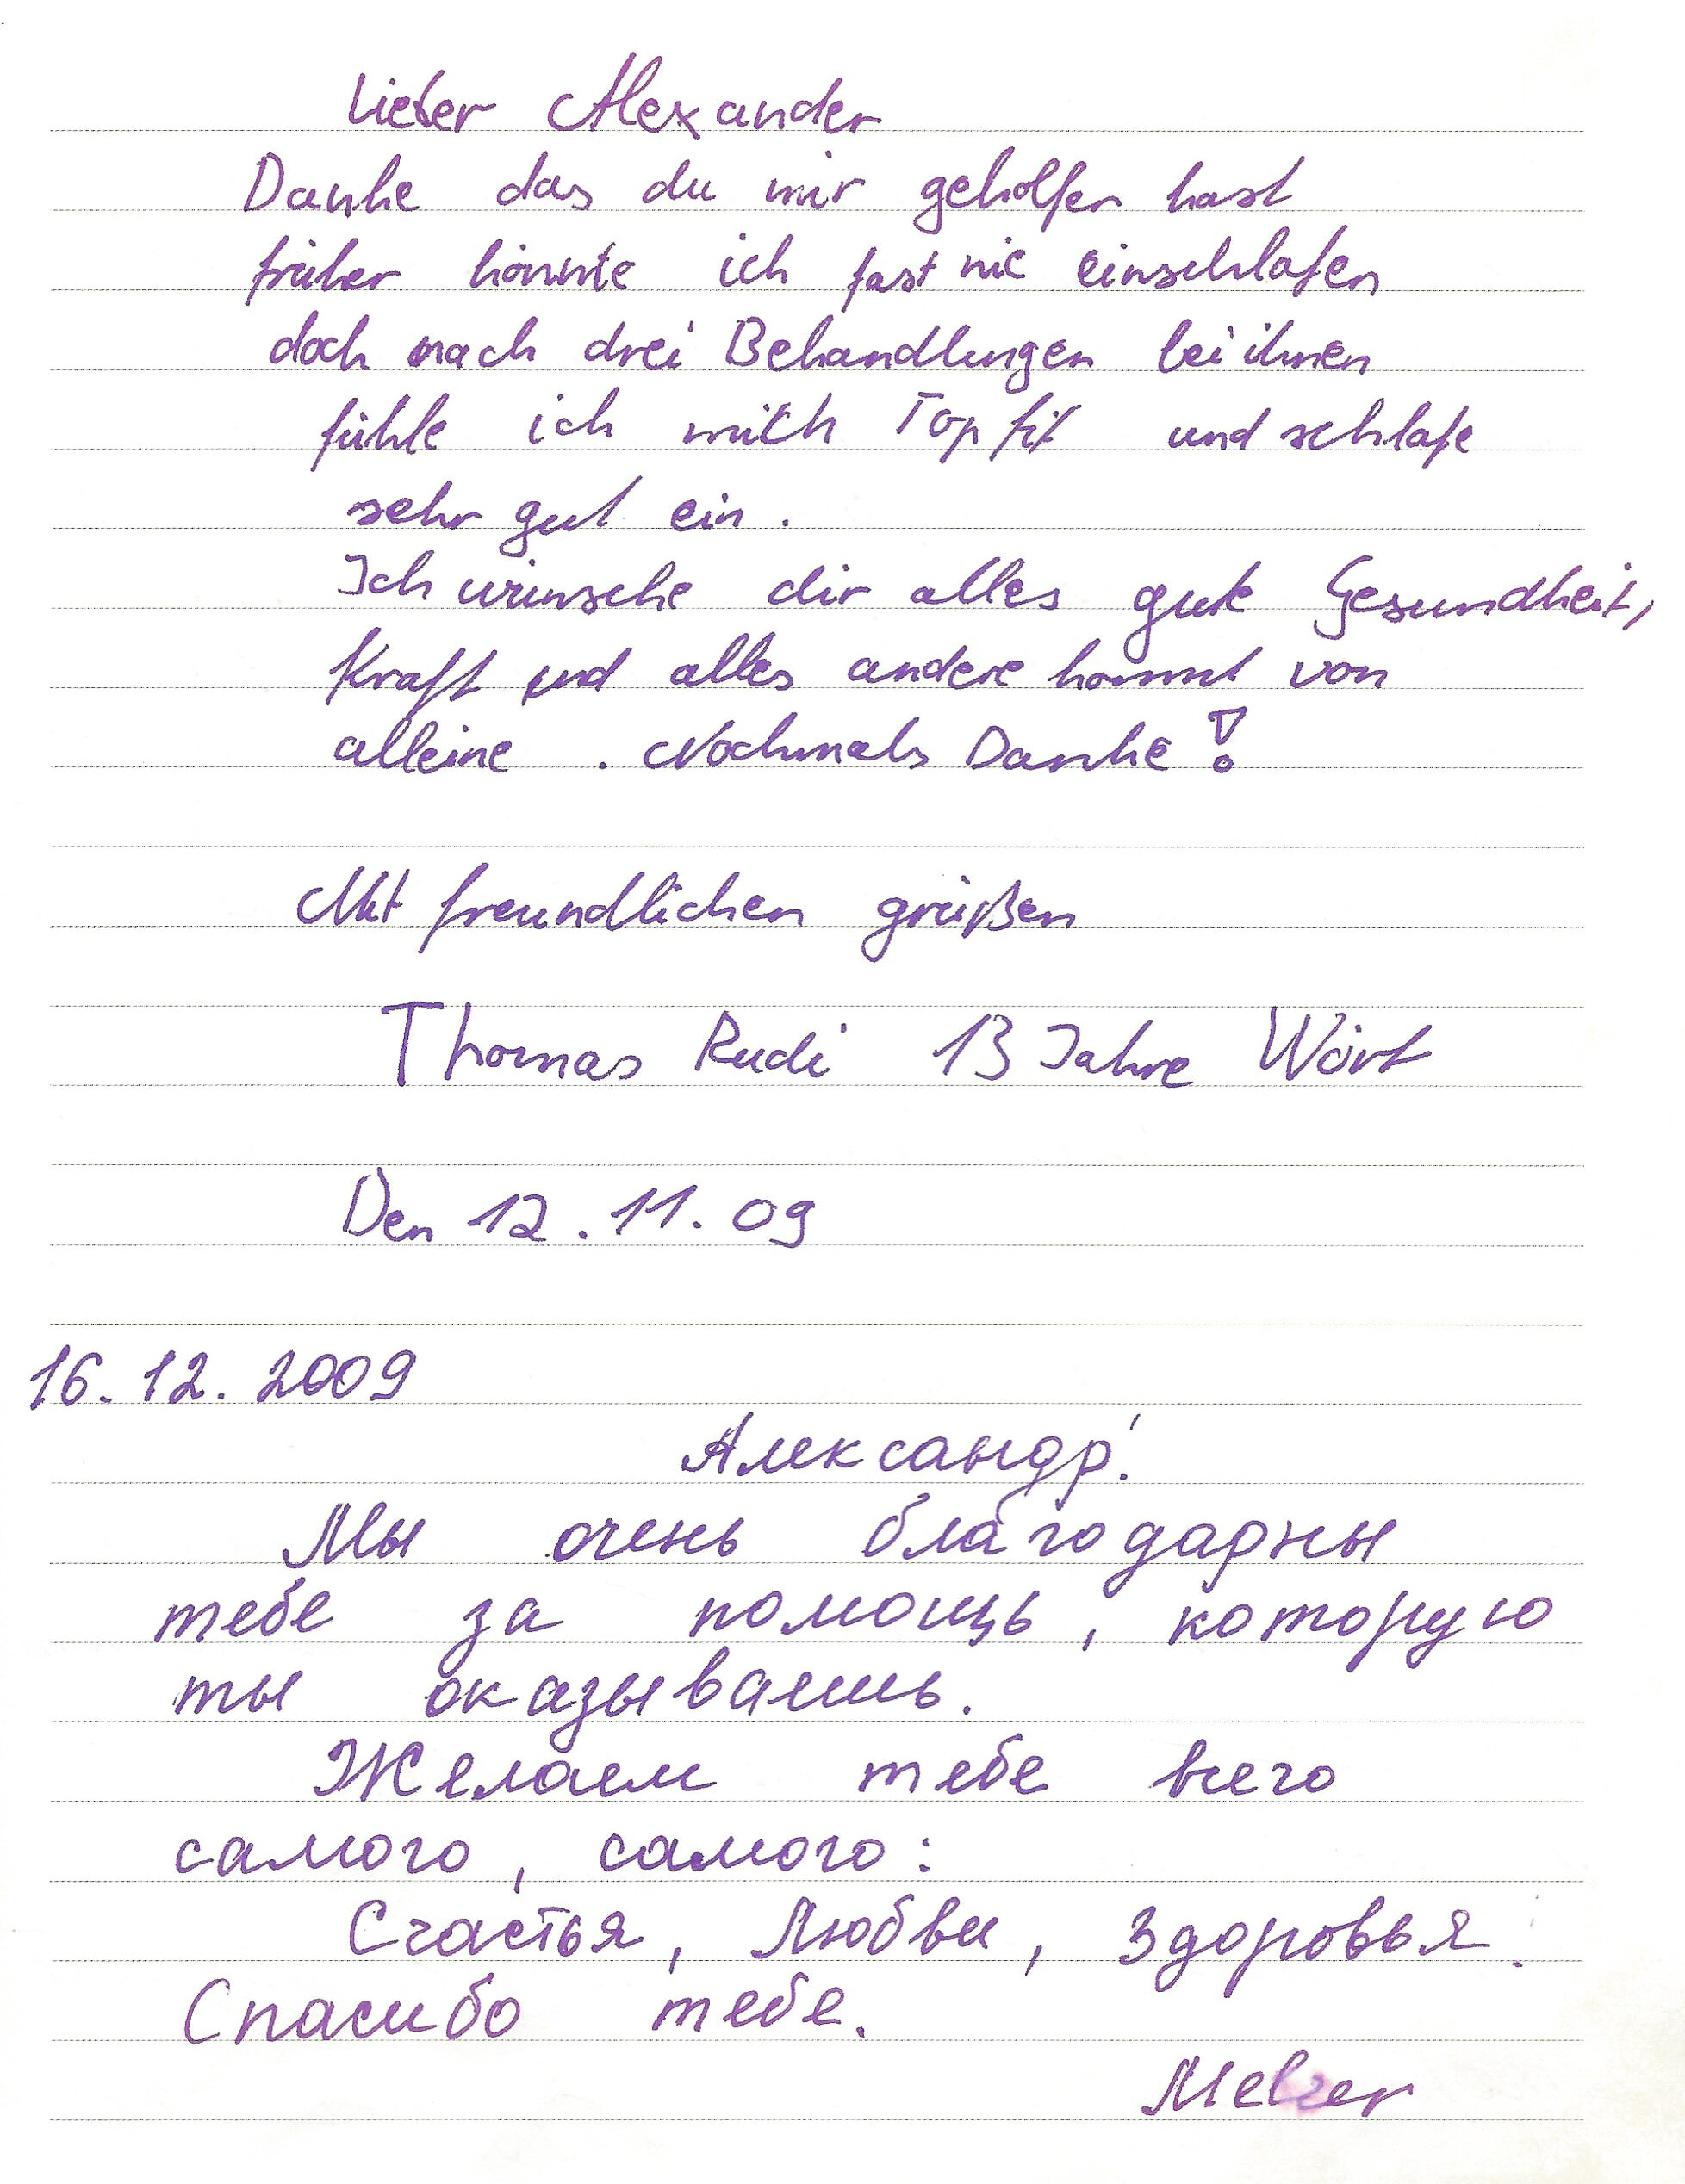 Lieber Alexander
Danke das du mir geholfen hast
früher könnte ich fast nie einschlafen
doch nach drei Behandlungen bei ihnen
fühle ich mich Top fit und schlafe
sehr gut ein.
Ich wünsche dir alles gute Gesundheit,
Kraft und alles andere kommt von
alleine. Nochmals Danke!
Mit freundlichen grüßen
Thomas Rudi 13 Jahre Wört
Den 12.11.09
16.12.2009
Александр!
Мы очень благодарны
тебе за помощь, которую
ты оказываешь.
Желаем тебе всего
самого, самого:
Счастья, Любви, Здоровья!
Спасибо тебе.
Melzer